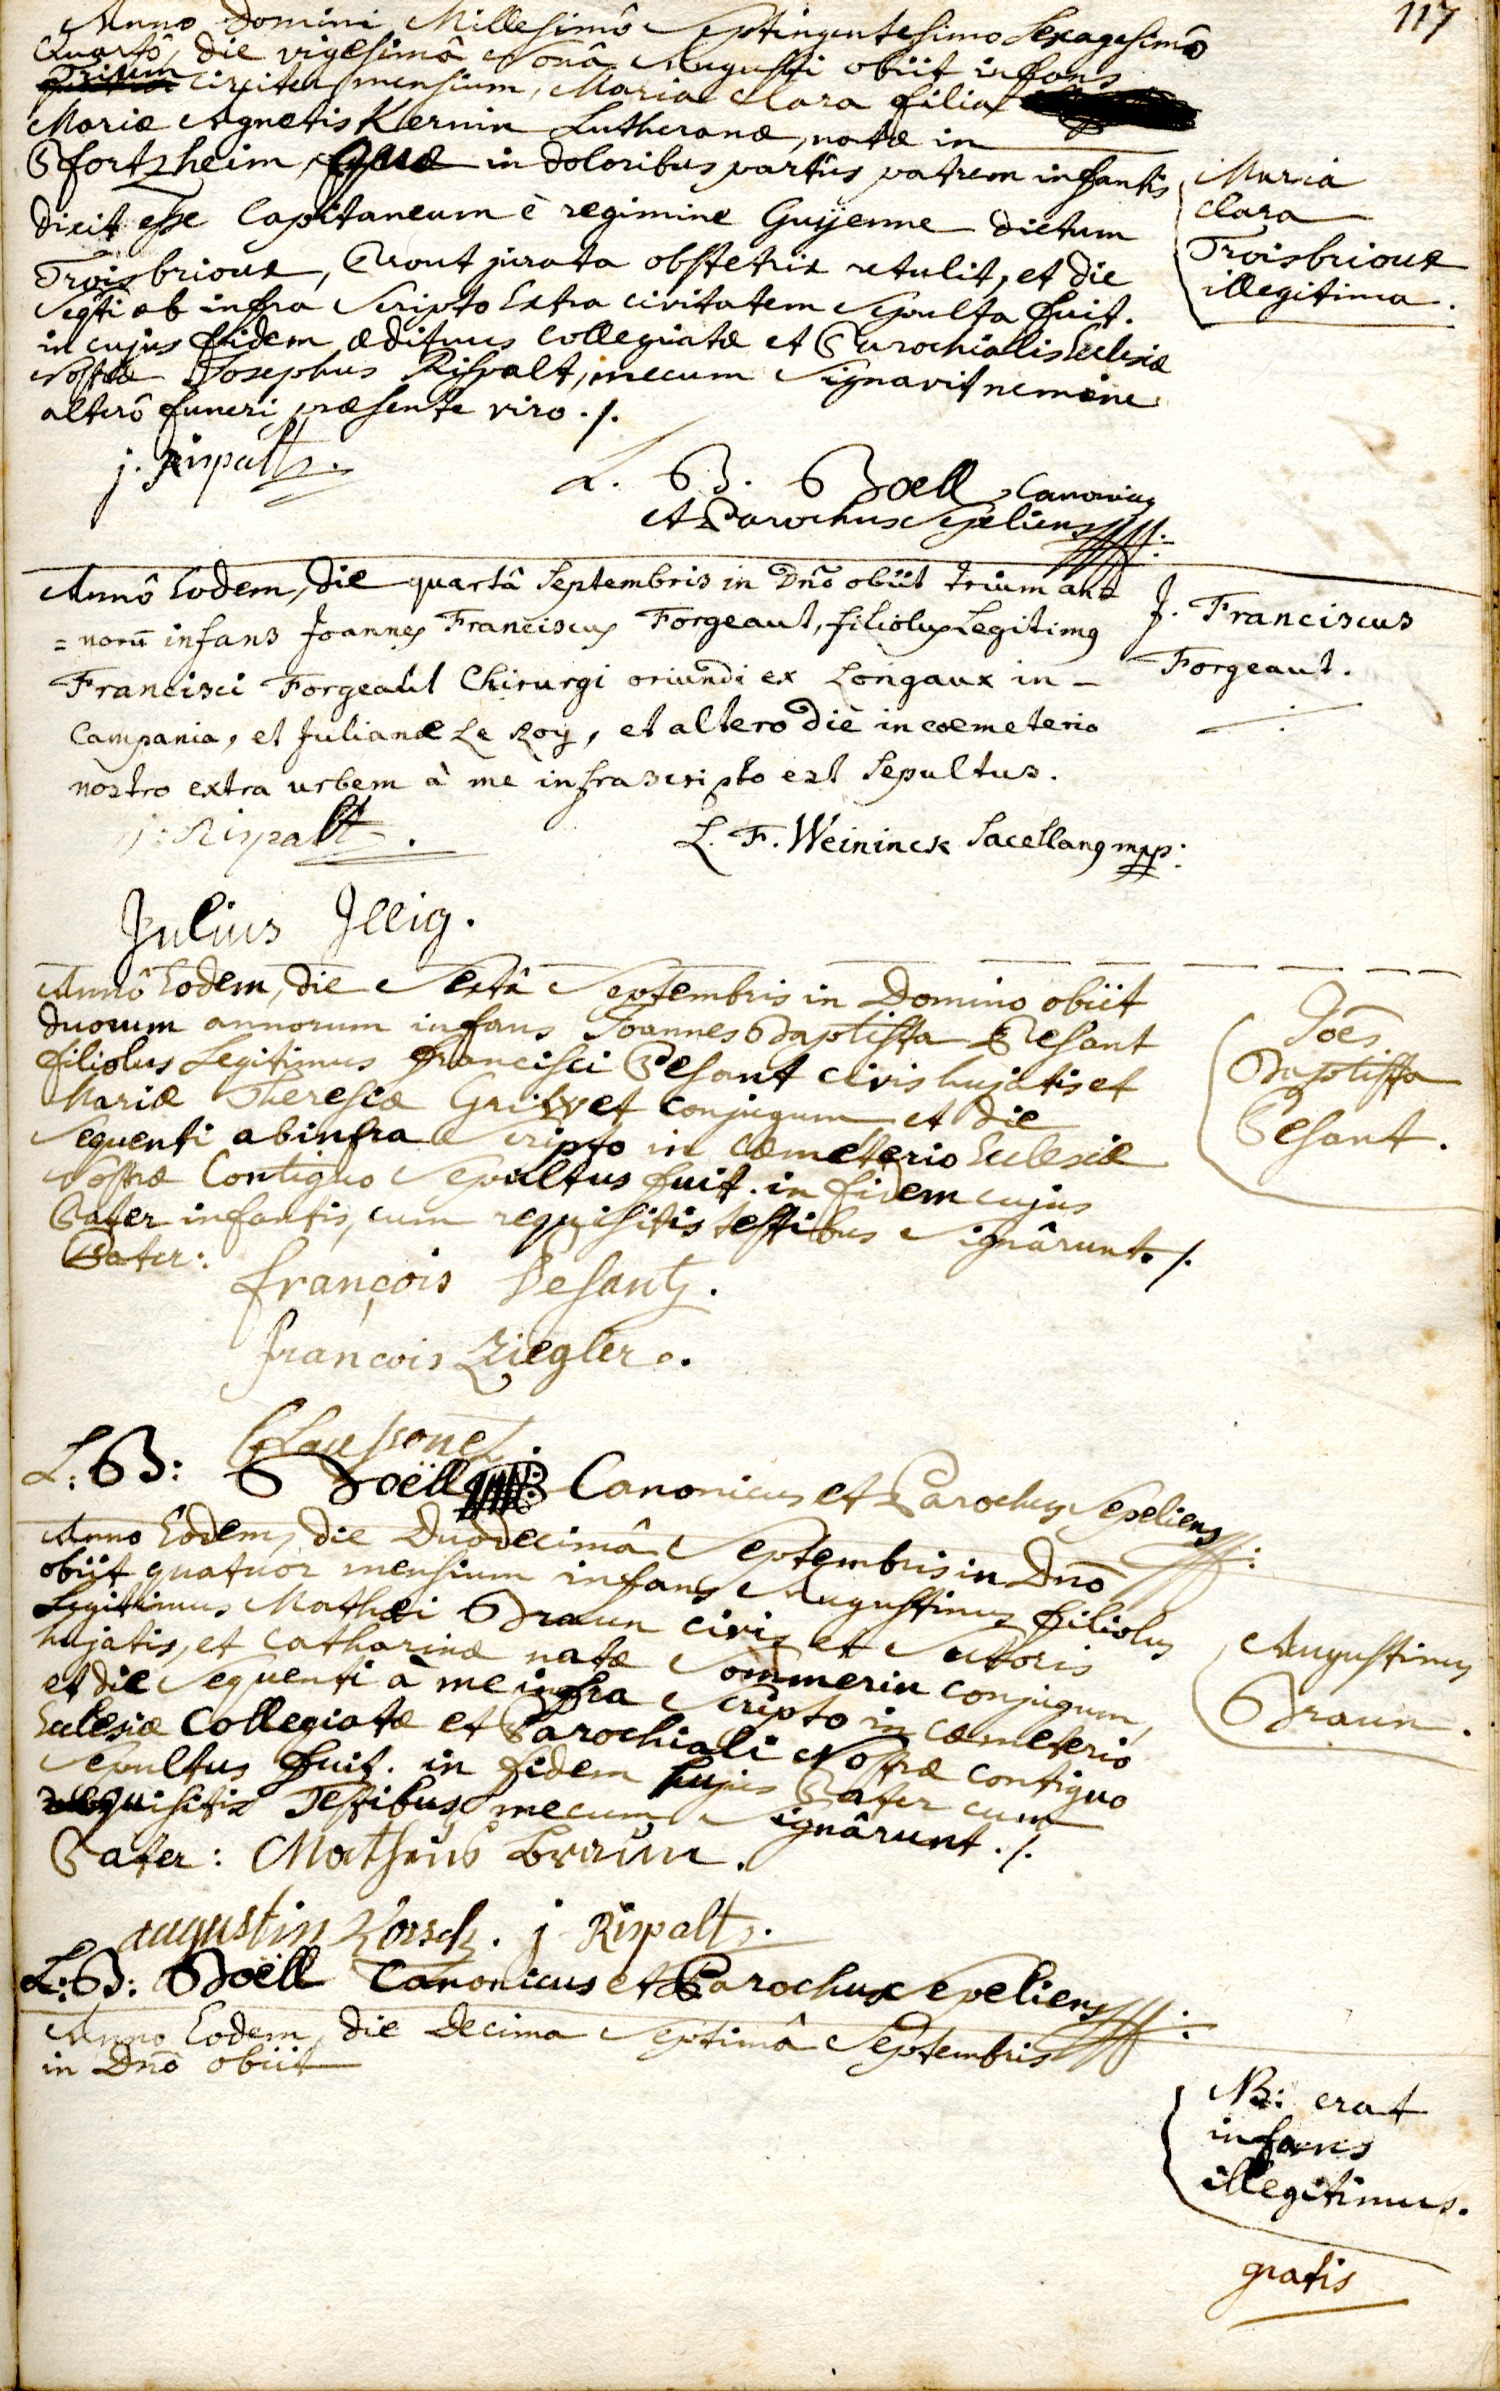 117
Anno Domini Millesimô Septingentesimo Sexagesimô
Quartô, die vigesimâ Nonâ Augusti obiit infans
Trium circiter mensium, Maria Clara filia
Mariæ Agnetis Kernin Lutheranæ, natæ in
Pfortzheim, Quæ in doloribus partûs patrem infantis
dixit esse Capitaneum è regimine Guyenne dictum
Troisbrioux, Prout jurata obstetrix retulit, et die
Seqti ab infra Scripto Extra civitatem Sepulta fuit.
in cujus fidem ædituus Collegiatæ et Parochialis Eclesiæ
Nostræ Josephus Rispalt, mecum Signavit nemine
alterô funeri præsente viro ./.
Maria
Clara
Troisbrioux
illegitima.
j. Rispalt.
L. B. Boell Canonicus
et Parochus Sepeliens
Annô Eodem, die quartâ Septembris in Dnô obiit trium an=
=norū infans Joannes Franciscus Forgeaut, filiolus Legitimus
Francisci Forgeaut Chirurgi oriundi ex Longaux in -
Campania, et Julianæ Le Roy, et altero die in coemeterio
nostro extra urbem à me infrascripto est Sepultus.
J. Franciscus
Forgeaut.
j: Rispalt.
L. F. Weininck Sacellanus mpp:
Julius Illig.
Annô Eodem, die Sextâ Septembris in Domino obiit
duorum annorum infans Joannes Baptista Pesant
filiolus Legitimus francisci Pesant civis hujatis et
Mariæ Theresiæ Grivet conjugum et die
Sequenti ab infra Scripto in Cæmeterio Eclesiæ
Nostræ Contiguo Sepultus fuit. in fidem cujus
Pater infantis, cum requisitis testibus Signârunt ./.
Joēs
Baptista
Pesant.
Pater: françois Pesant.
francois Ziegler.
L: B: Boëll Canonicus et Parochus Sepeliens
Anno Eodem, die Duodecimâ Septembris in Dnō
obiit quatuor mensium infans Augustinus filiolus
Legitimus Mathæi Braun civis et Sutoris
hujatis, et Catharinæ natæ Sommerin conjugum,
et die Sequenti à me infra Scripto in Cæmeterio
Eclesiæ Collegiatæ et Parochiali Nostræ contiguo
Sepultus fuit. in fidem hujus Pater cum
requisitis Testibus mecum Signârunt ./.
Augustinus
Braun.
Pater: Matheus Braun.
augustin j Rispalt.
L: B: Boëll Canonicus et Parochus Sepeliens
Anno Eodem, die Decima Septimâ Septembris
in Dnō obiit
NB: erat
infans
illegitimus.
gratis